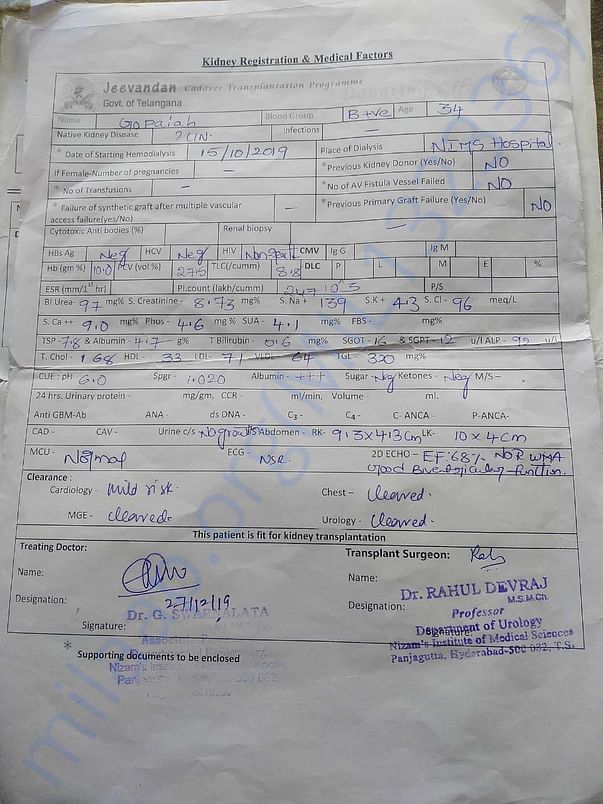 Kidney Registration & Medical Factors
Jeevandan Cadaver Transplantation Programme
Govt. of Telangana
Name Gopaiah Blood Group B +ve Age 34
Native Kidney Disease ?CIN- Infections —
* Date of Starting Hemodialysis 15/10/2019 Place of Dialysis NIMS Hospital.
If Female-Number of pregnancies — *Previous Kidney Donor (Yes/No) NO
* No of Transfusions — * No of AV Fistula Vessel Failed NO
* Failure of synthetic graft after multiple vascular access failure(yes/No) — *Previous Primary Graft Failure (Yes/No) NO
Cytotoxic Anti bodies (%) Renal biopsy —
HBs Ag Neg HCV Neg HIV CMV Ig G Ig M
Hb (gm %) 10.0 PCV (vol %) 27.5 TLC(/cumm) 8.8 DLC P L M E %
ESR (mm/1st hr) Pl.count (lakh/cumm) P/S
Bl Urea- 97 mg% S. Creatinine - 8.73 mg% S. Na + 139 S.K + 4.3 S. Cl - 96 meq/L
S. Ca ++ 9.0 mg% Phos - 4.6 mg% SUA - 4.1 mg% FBS - mg%
TSP - 7.8 & Albumin - 4.7 g% T Bilirubin - 0.6 mg% SGOT - 16 & SGPT - 12 u/l ALP - 92 u/l
T. Chol - 168 HDL - 33 LDL - 71 VLDL - 64 TGL - 320 mg%
CUE : pH 6.0 Spgr - 1.020 Albumin - +++ Sugar - Neg Ketones - Neg M/S -
24 hrs. Urinary protein - mg/gm, CCR - ml/min, Volume - ml.
Anti GBM-Ab ANA - ds DNA - C3 - C4 - C- ANCA - P-ANCA-
CAD - CAV - Urine c/s No growth US Abdomen - RK- 9.3x4.3cm LK- 10 x 4 cm
MCU - Normal ECG - NSR. 2D ECHO - EF:68% NO RWMA
Good Biventricular function.
Clearance :
Cardiology - Mild risk. Chest - Cleared.
MGE - Cleared. Urology - Cleared.
This patient is fit for kidney transplantation
Treating Doctor: Transplant Surgeon:
Name: Name:
Dr. RAHUL DEVRAJ
M.S.M.Ch.
Designation: 27/12/19 Designation: Professor
Dr. G. SWARNALATA
Department of Urology
Signature: Signature:
Nizam's Institute of Medical Sciences
Panjagutta, Hyderabad-500 082. T.S.
* Supporting documents to be enclosed